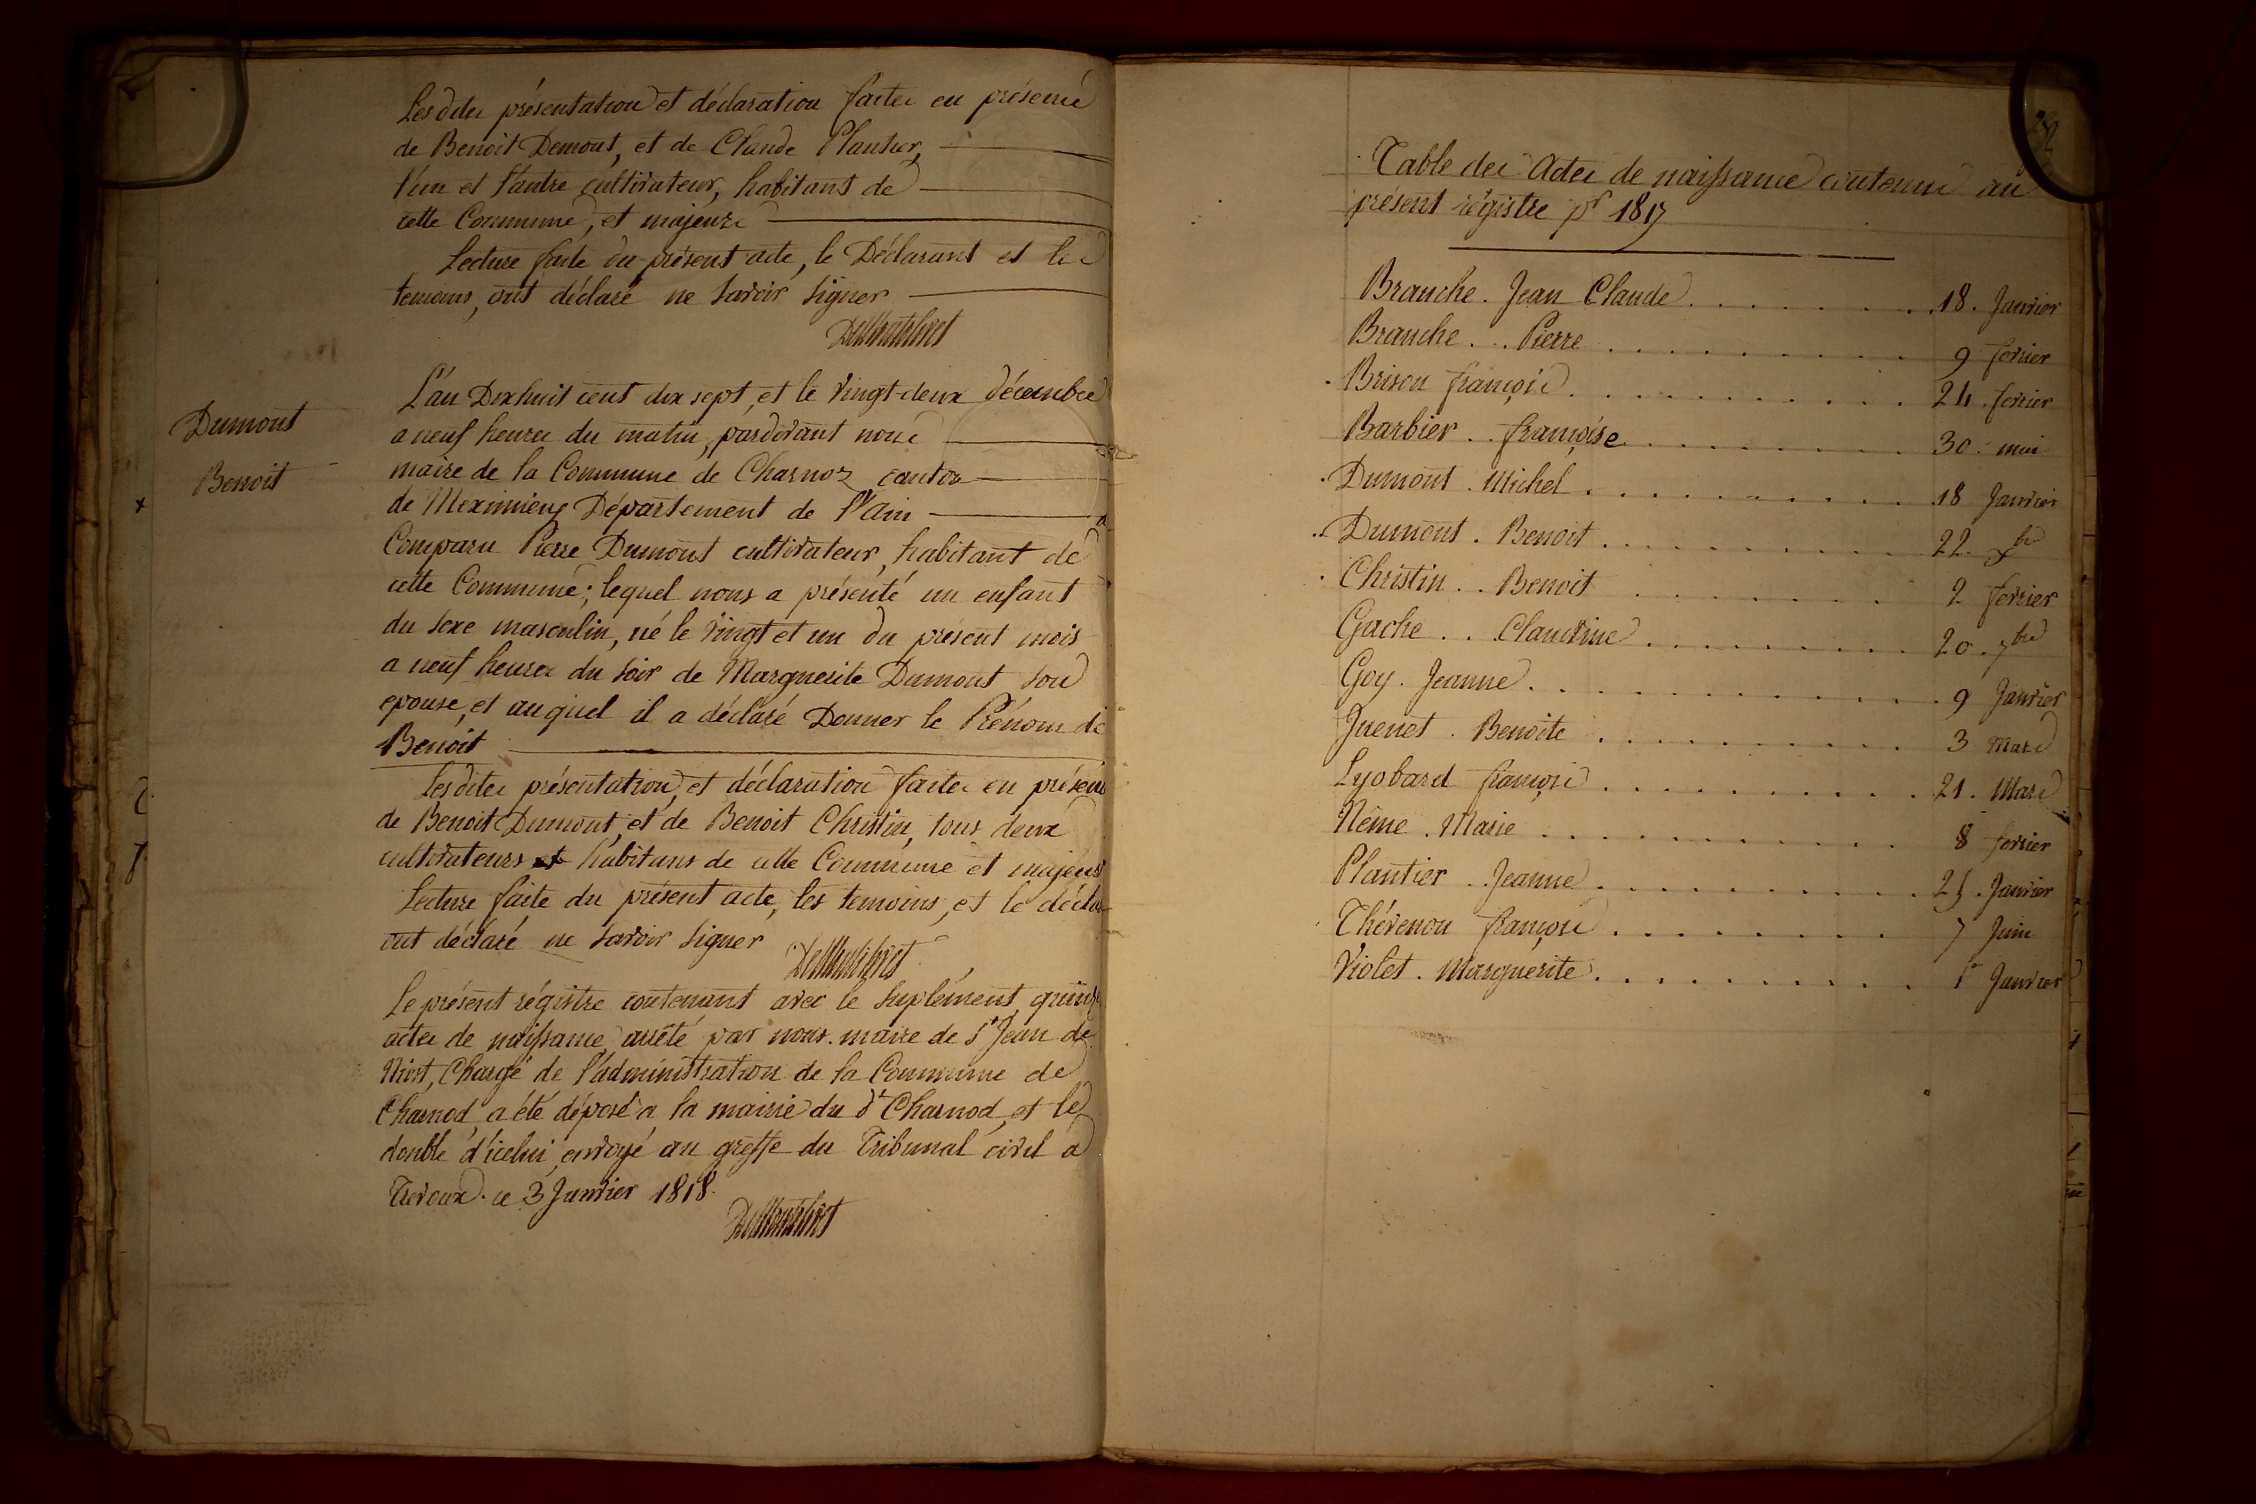 Lesdites présentation et déclaration faites en présence
de Benoit Demont, et de Claude Plantier,
l'un et l'autre cultivateur, habitant de
cette Commune, et majeurs
Lecture faite du présent acte, le Déclarant et les
temoins, ont déclaré ne savoir signer
Dumont
Benoit
L'an Dixhuit cent dix sept, et le vingt-deux décembre
a neuf heures du matin, pardevant nous
maire de la Commune de Charnoz canton
de Meximieux Département de l'Ain a
Comparu Pierre Dumont cultivateur, habitant de
cette Commune; lequel nous a présenté un enfant
du sexe masculin, né le vingt et un du présent mois
a neuf heures du soir de Marguerite Dumont son
epouse, et auquel il a déclaré Donner le Prénom de
Benoit
Lesdites présentation, et déclaration faites en présence
de Benoit Dumont, et de Benoit Christin, tous deux
cultivateurs et habitans de cette Commune et majeurs
Lecture faite du présent acte, les temoins, et le décla
ont déclaré ne savoir signer
Le présent régistre contenant avec le suplément, quinze
actes de naissance, arrêté par nous maire de St Jean de
Niost, Chargé de l'administration de la Commune de
Charnod, a été déposé a la mairie du dt Charnod, et le
double d'icelui envoyé au greffe du Tribunal civil a
Trevoux. ce 3 Janvier 1818.
Table des Actes de naissance contenus au
présent régistre pr 1817
Branche. Jean Claude 18. Janvier
Branche. Pierre 9 fevrier
Brison françois 24 fevrier
Barbier françoise 30. mai
Dumont. Michel 18 Janvier
Dumont. Benoit 22. xbre
Christin. Benoit 2 fevrier
Gache. Claudine 20. 7bre
Goy. Jeanne 9 Janvier
Juenet. Benoite 3 Mars
Lyobard françois 21. Mars
Nême. Marie 8 fevrier
Plantier Jeanne 25. Janvier
Thévenon françois 7 Juin
Violet. Marguerite 1r Janvier